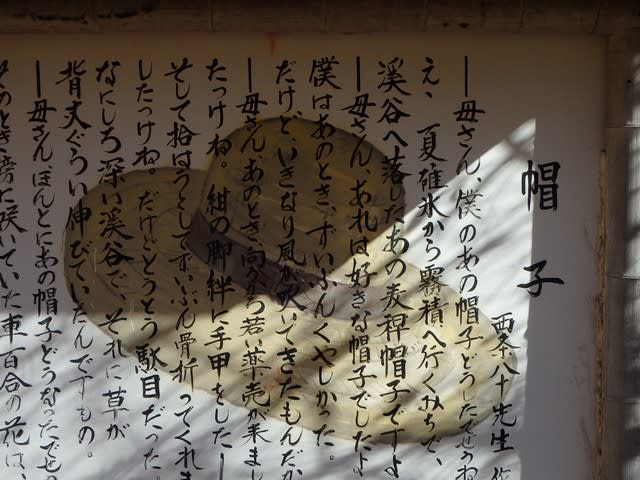 帽子
西条八十先生 作
―母さん、僕のあの帽子どうしたでせうね
え、夏碓氷から霧積へ行くみちで、
渓谷へ落したあの麦稈帽子ですよ
―母さん、あれは好きな帽子でしたよ
僕はあのとき、ずいぶんくやしかった。
だけど、いきなり風が吹いてきたもんだか
―母さん、あのとき、向ふから若い薬売が来まし
たっけね。紺の脚絆に手甲をした―
そして拾はうとしてずいぶん骨折ってくれま
したっけね。だけどとうとう駄目だった。
なにしろ深い渓谷で、それに草が
背丈ぐらい伸びていたんですもの。
―母さん、ほんとにあの帽子どうなったでせ
そのとき傍に咲いていた車百合の花は、